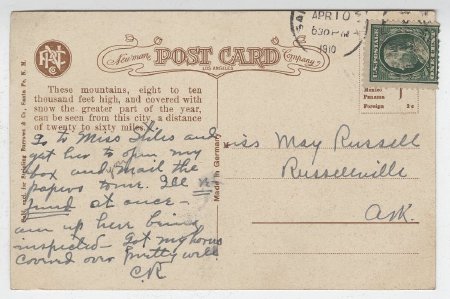 APR 10
630 PM
1910
Newman POST CARD Company
LOS ANGELES
These mountains, eight to ten
thousand feet high, and covered with
snow the greater part of the year,
can be seen from this city, a distance
of twenty to sixty miles.
Mexico
Panama
Foreign 2c
Made in Germany
Go to Miss Stiles and
get her to open my
box and mail the
papers to me. Ill
send at once -
am up here being
inspected - Got my horns
covered over pretty well
CR
Miss May Russell
Russellville
Ark.